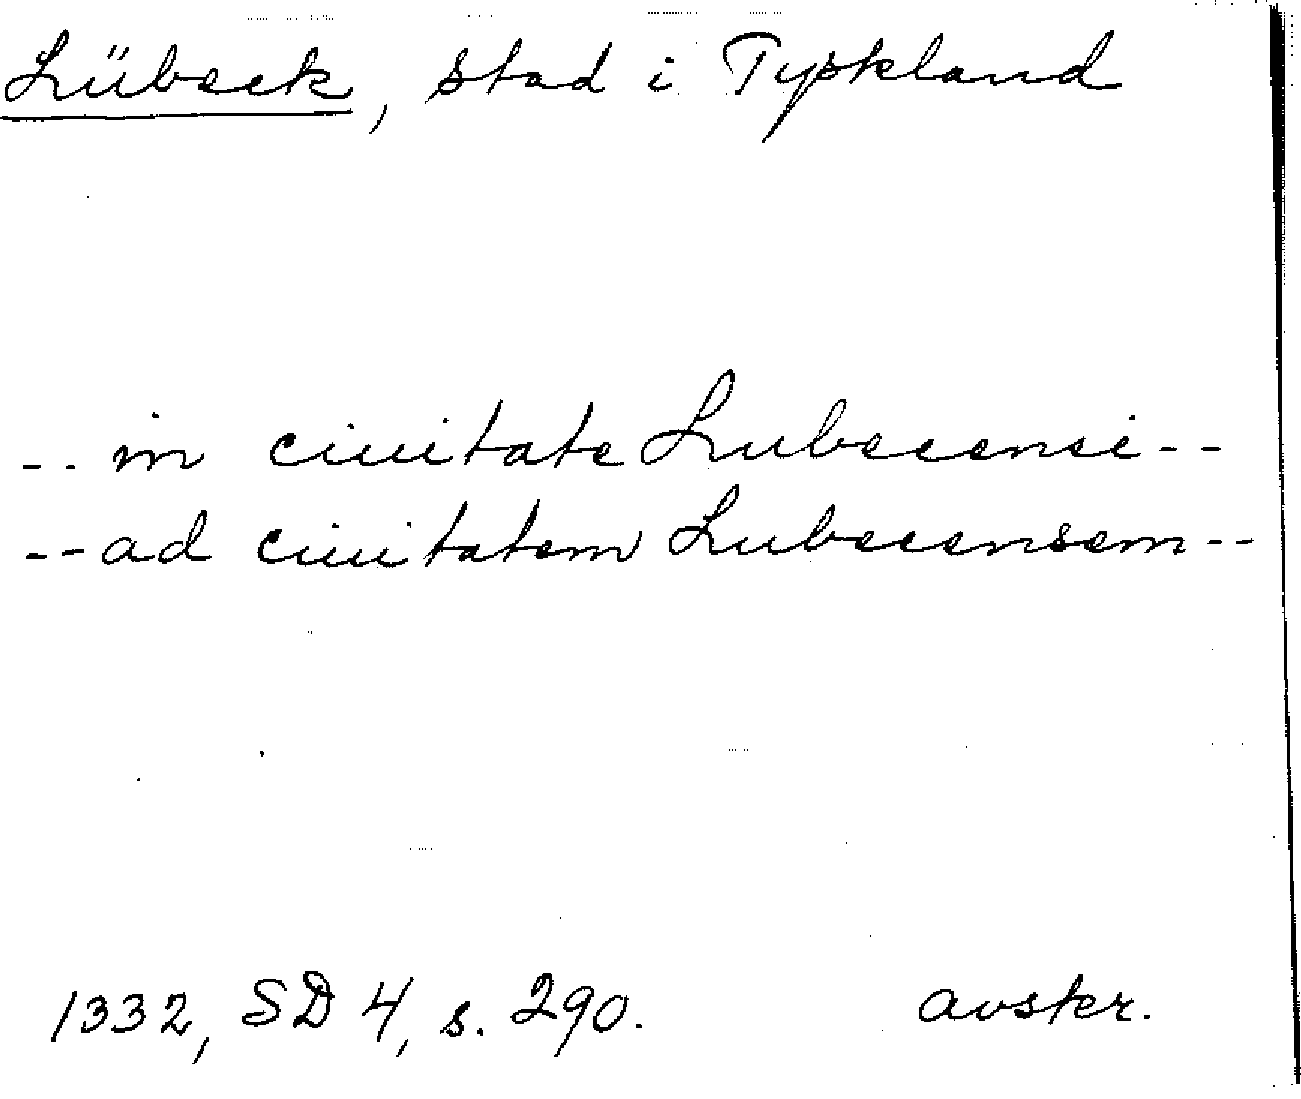 Lübeck, stad i Tyskland
-- in ciuitate Lubecensi --
-- ad ciuitatem Lubecensem --
1332, SD 4, s. 290. avskr.